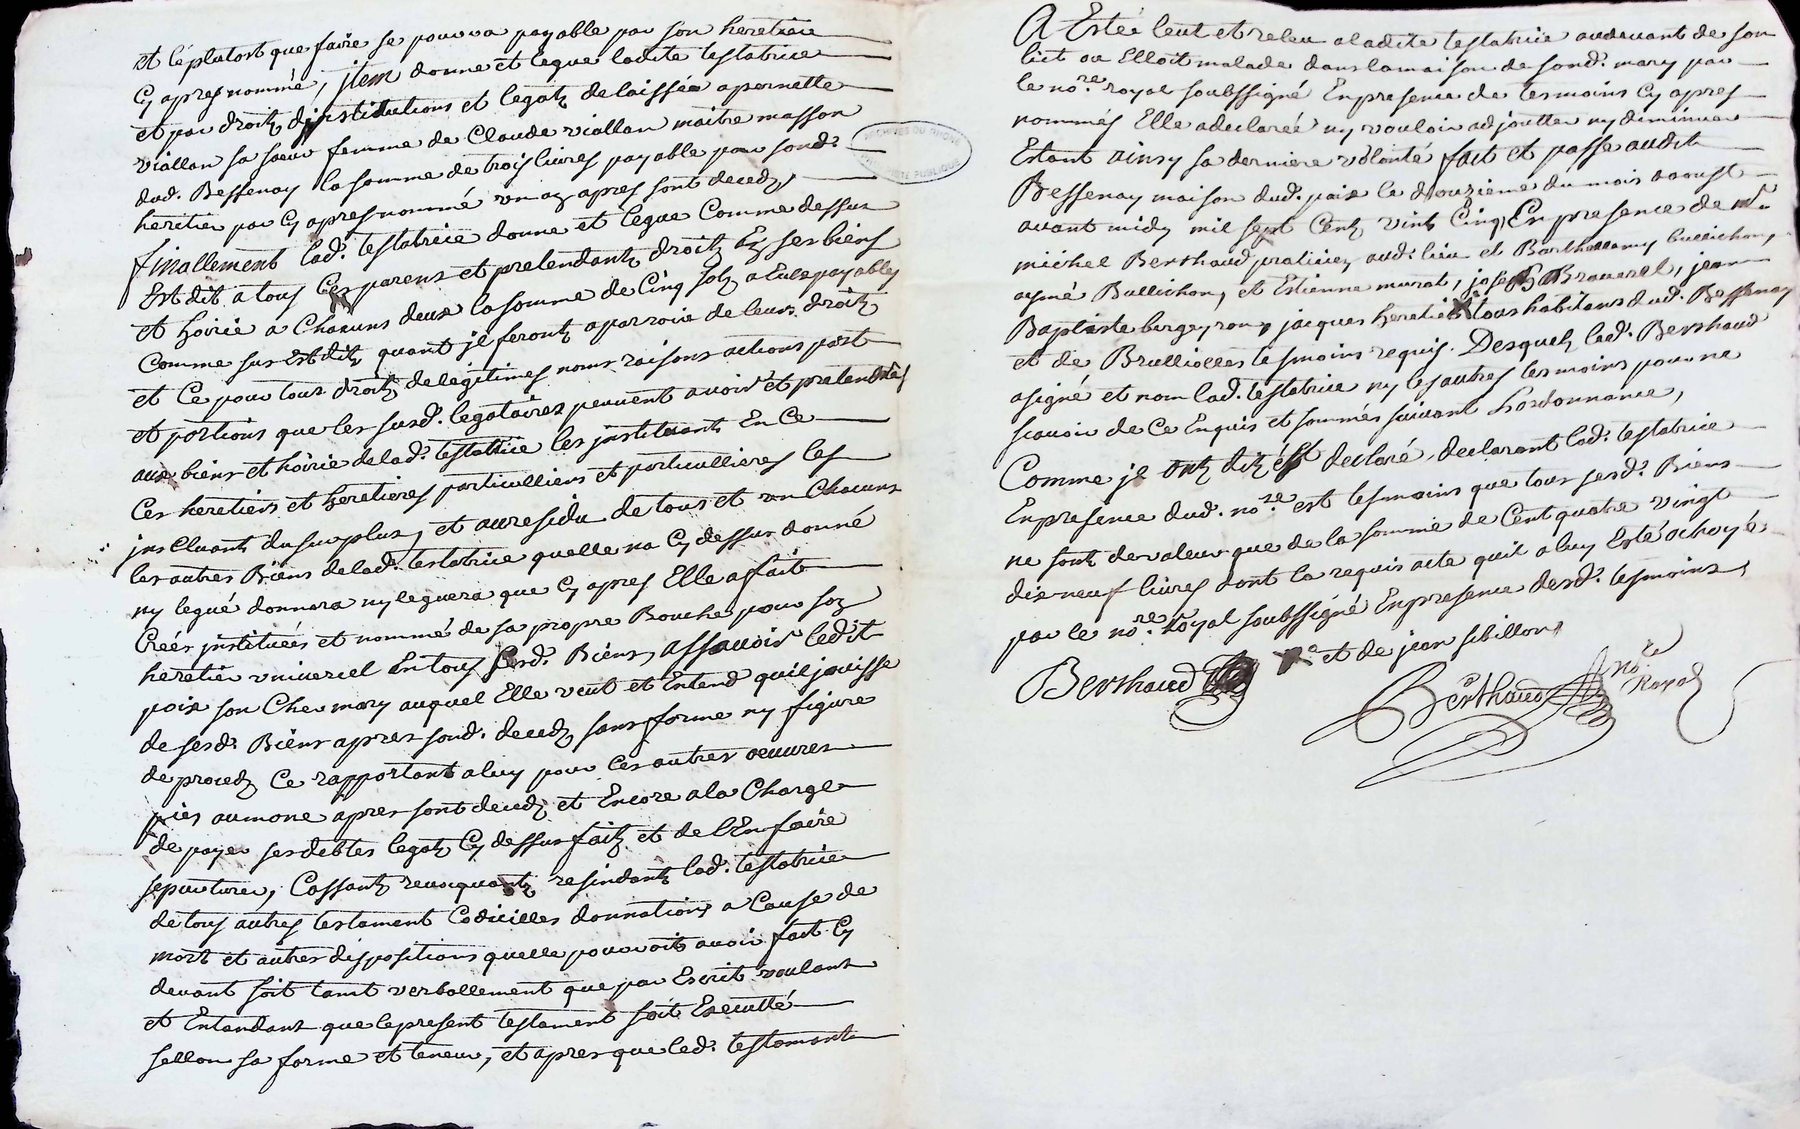 et le plutost que faire se pourra payable par son heretier
cy apres nommé, jtem donne et legue ladite testatrice
et par droitz dinstitutions et legatz delaissée a pernette
viallan sa soeur femme de Claude viallan maitre masson
dud. Bessenay la somme de trois livres payable par sond.
heretier par cy apres nommé un an apres sont decedz,
finallement lad. testatrice donne et legue Comme dessus
Est dit a tous ces parens et pretendantz droitz En ses biens
et hoirie a Chacuns deux la somme de Cinq solz a Eux payables
Comme sus Est ditz quant jl feront aparroir de leurs droitz
et Ce pour tous droitz de legitimes noms raisons actions part
et portions que les susd. legataires peuvent avoir et pretendres
aux biens et hoirie de lad. testatrice les jnstituants En Ce
Ces heretiers et heretieres particulliers et particullieres les
jnscluants du surplus, et au residu de tous et un Chacuns
les autres Biens de lad. testatrice quelle na Cy dessus donné
ny legué donnera ny leguera que Cy apres Elle a fait
Créés jnstituées et nommé de sa propre Bouche pour son
heretier universel En tous sesd. Biens, assavoir ledit
poix son Cher mary auquel Elle veut et Entend quil jouisse
de sesd. Biens apres sond. decedz sans forme ny figure
de procedz Ce rapportant a luy pour Ces autres oeuvres
pies aumone apres sont decedz et Encore a la Charge
de payer ses debtes legatz Cy dessus faitz et de l'En faire
sepulturer, Cassantz revoquantz resindantz lad. testatrice
de tous autres testament Codicilles donnations a Cause de
mort et autres dispositions quelle pourroit avoir fait Cy
devant soit tant verballement que par Escrit voulant
et Entandant que le present testament soit Executté
sellon sa forme et teneur, et apres que led. testament
A Estée leut et releu a ladite testatrice audevant de son
lict ou Elloit malade dans la maison de sond. mary par
le nore. royal soubssigné En presence de tesmoins Cy apres
nommés Elle a declareé ny vouloir adjoutter ny diminuer
Estant ainsy sa derniere volonté fait et passe audit
Bessenay maison dud. poix le douzieme du mois daoust
avant midy mil sept Centz vint Cinq, En presence de me.
michel Berthaud praticien aud. lieu et Barthellemy bullichon,
aymé Bullichon, et Estienne murat, joseph Braverel, jean
Baptiste bergeyron, jacques heretier tous habitans dud. Bessenay
et de Brullioles tesmoins requis. Desquelz led. Berthaud
a signé et non lad. testatrice ny les autres tesmoins pour ne
scavoir de Ce Enquis et sommés suivant Lordonnance,
Comme jl ontz ditz et declaré, declarant lad. testatrice
En presence dud. nore. est tesmoins que tous sesd. Biens
ne sont de valeur que de la somme de Cent quatre vingt
dix neuf livres dont la requis acte quil a luy Esté octroyé
par le nore. Royal soubssigné En presence desd. tesmoins,
et de jean sibillon
Berthaud
Berthaud nore Royal
ARCHIVES DU RHONE